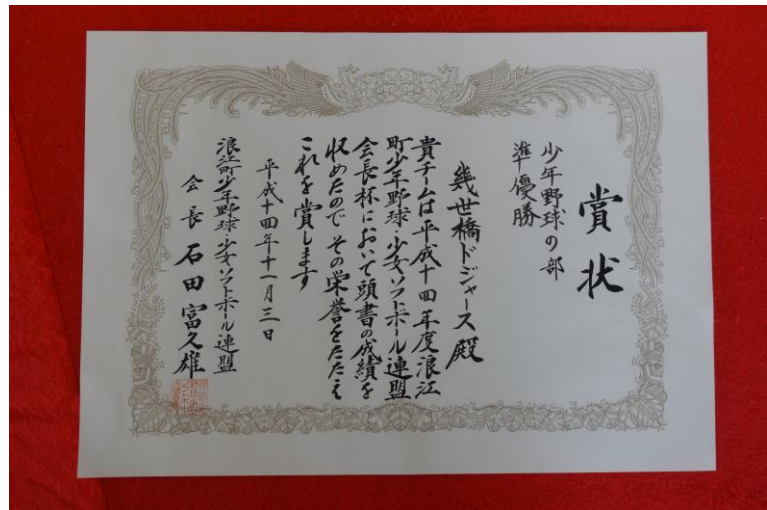 賞状
少年野球の部
準優勝
幾世橋ドジャース殿
貴チームは平成十四年度浪江
町少年野球・少女ソフトボール連盟
会長杯において頭書の成績を
収めたので その栄誉をたたえ
これを賞します
平成十四年十一月三日
浪江町少年野球・少女ソフトボール連盟
会長 石田富久雄